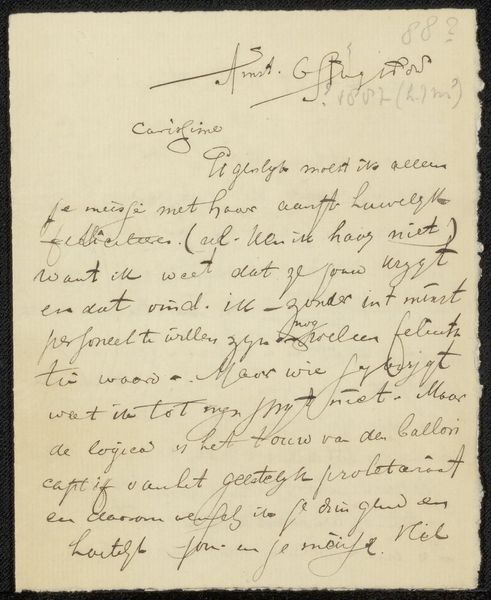 88?
Amst. 6 Aug 1888
? 1887 (h.s m?)
Carissime
Eigenlijk moest ik alleen
je meisje met haar aanst. huwelijk
feliciteeren. (al ken ik haar niet)
want ik weet dat ze jouw krijgt
en dat vind ik - zonder in 't minst
personeel te willen zijn - nog wel een felicita
tie waard -. Maar wie jij krijgt
weet ik tot mijn spijt niet. Maar
de logica is het touw van den ballon
captif van het geestelijk proletariaat
en daarom wensch ik je dringend en
hartelijk jou en je meisje.